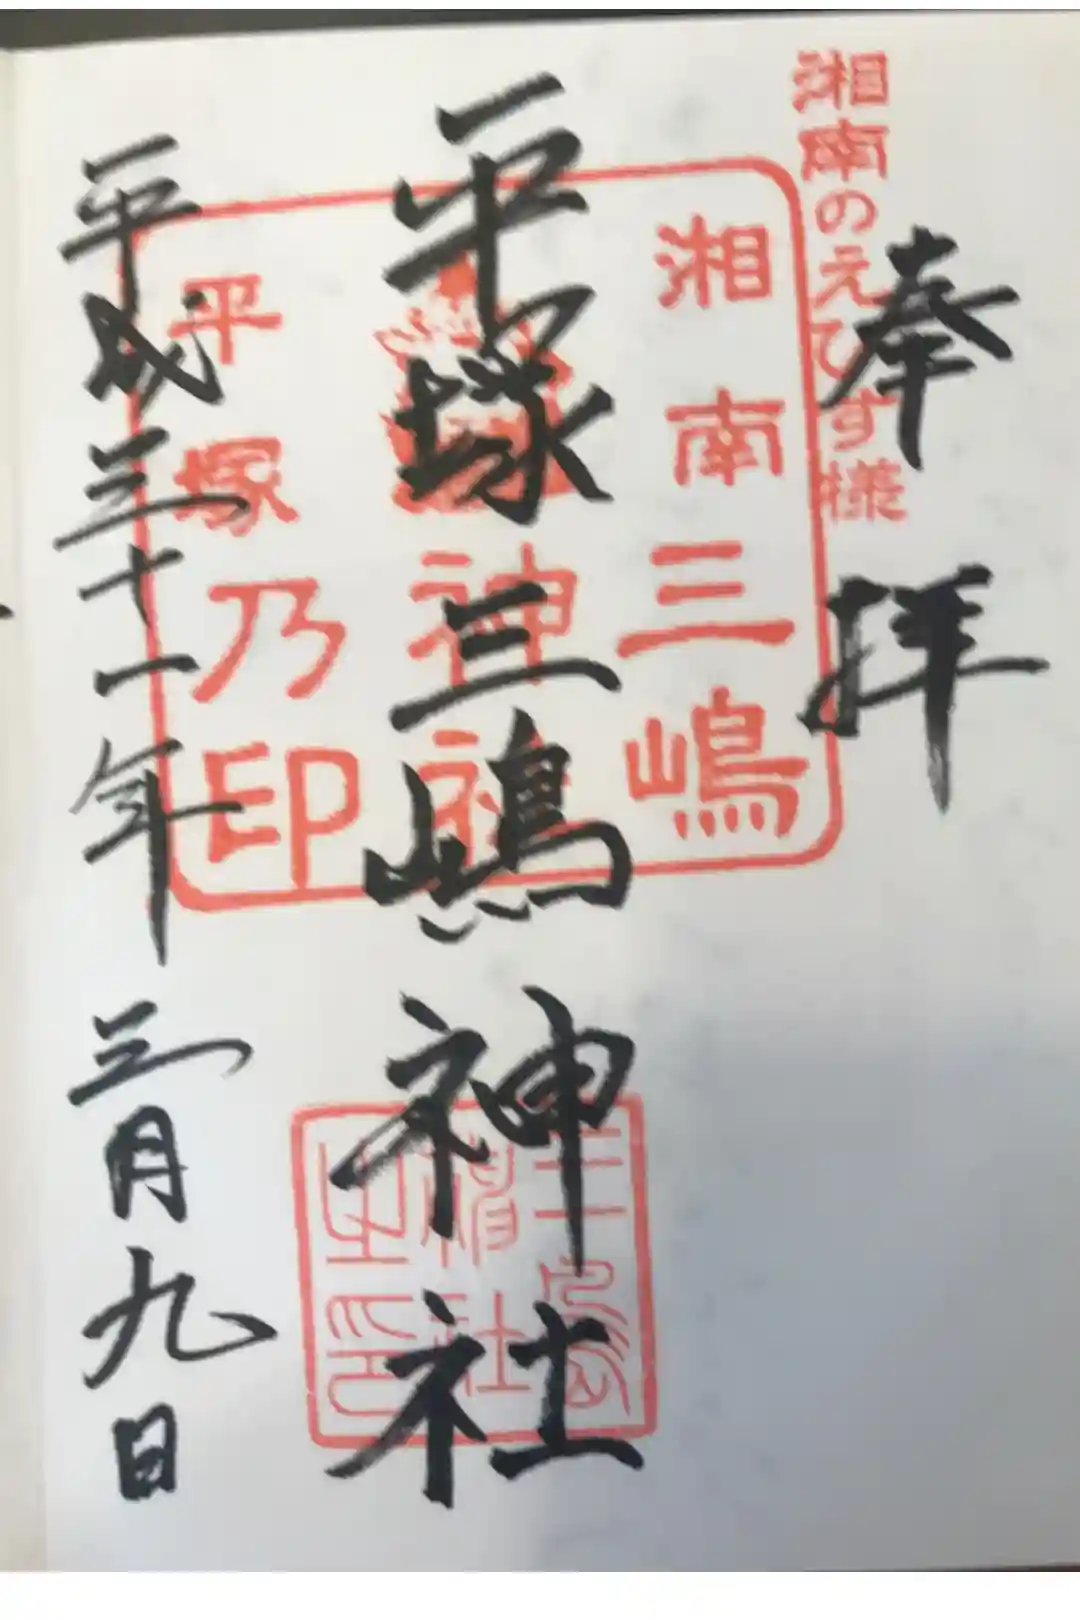 湘南のえびす様
奉拝
湘南三嶋
神社
平塚乃印
平塚三嶋神社
三嶋
神社
之印
平成三十一年三月九日